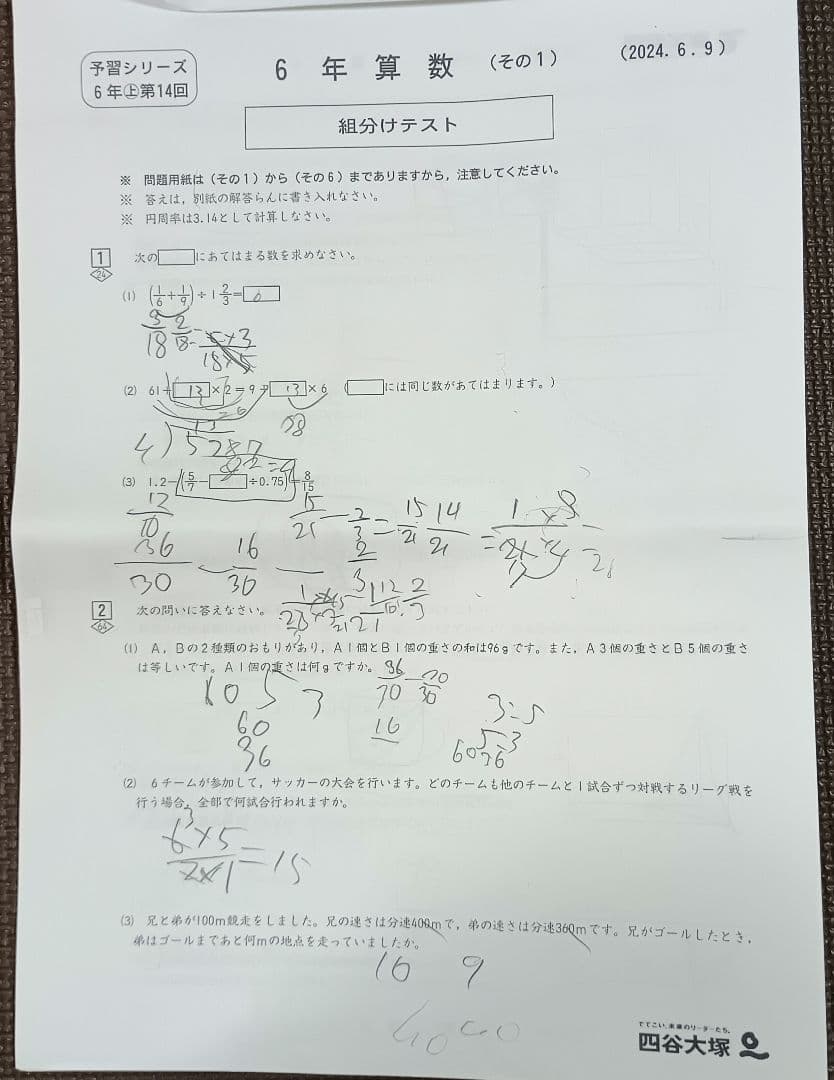 予習シリーズ
6年㊤第14回
6 年 算 数 (その1) (2024.6.9)
組分けテスト
※ 問題用紙は(その1)から(その6)までありますから,注意してください。
※ 答えは,別紙の解答らんに書き入れなさい。
※ 円周率は3.14として計算しなさい。
1 次の□にあてはまる数を求めなさい。
24
(1) (1/6+1/9)÷1 2/3=
3/18 2/18
(2) 61+ 13 ×2=9+ 13 ×6 (□には同じ数があてはまります。)
4)52
(3) 1.2-(5/7-□÷0.75)=8/15
12/10 15/21 - 2/3 = 15/21 14/21
36/30 16/30
2 次の問いに答えなさい。
64
(1) A,Bの2種類のおもりがあり,A1個とB1個の重さの和は96gです。また,A3個の重さとB5個の重さ
は等しいです。A1個の重さは何gですか。
60 5 3
60
36
16
3=5
5-3
60 36
(2) 6チームが参加して,サッカーの大会を行います。どのチームも他のチームと1試合ずつ対戦するリーグ戦を
行う場合,全部で何試合行われますか。
6×5/2×1=15
(3) 兄と弟が100m競走をしました。兄の速さは分速400mで,弟の速さは分速360mです。兄がゴールしたとき,
弟はゴールまであと何mの地点を走っていましたか。
10 9
ででこい、未来のリーダーたち。
四谷大塚